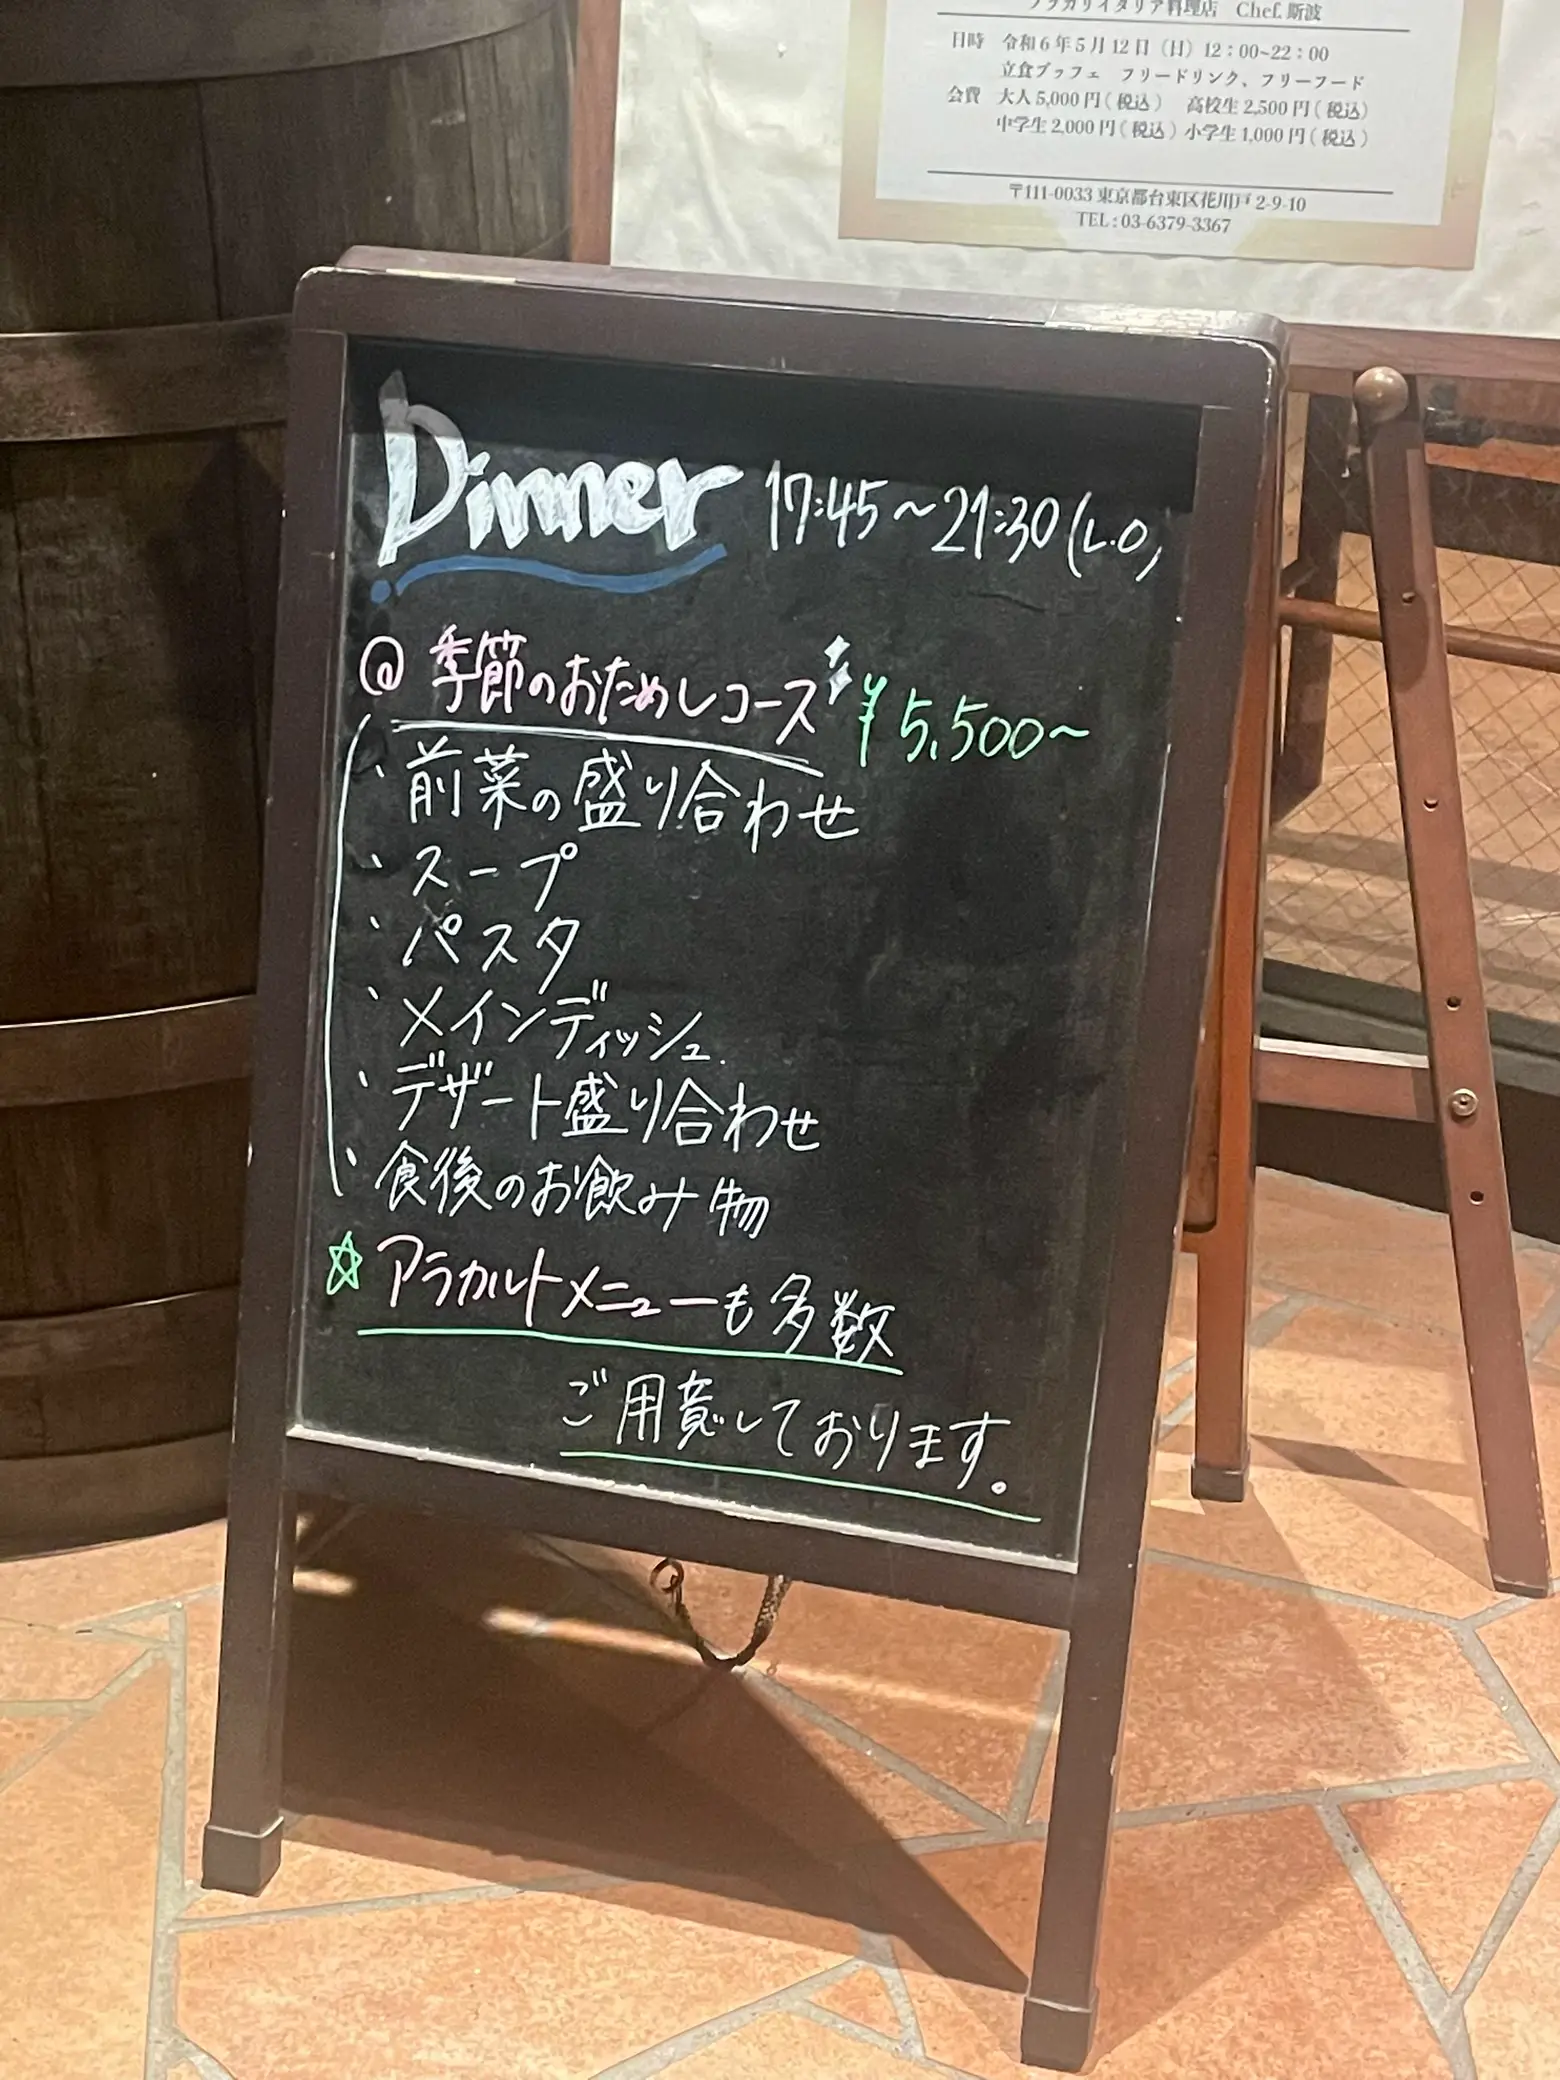 ブラカリイタリア料理店 Chef. 斯波
日時 令和6年5月12日(日)12:00~22:00
立食ブッフェ フリードリンク、フリーフード
会費 大人5,000円(税込) 高校生2,500円(税込)
中学生2,000円(税込)小学生1,000円(税込)
〒111-0033 東京都台東区花川戸2-9-10
TEL : 03-6379-3367
Dinner 17:45~21:30(L.O)
@ 季節のおためしコース ¥5,500~
・前菜の盛り合わせ
・スープ
・パスタ
・メインディッシュ
・デザート盛り合わせ
・食後のお飲み物
☆アラカルトメニューも多数
ご用意しております。